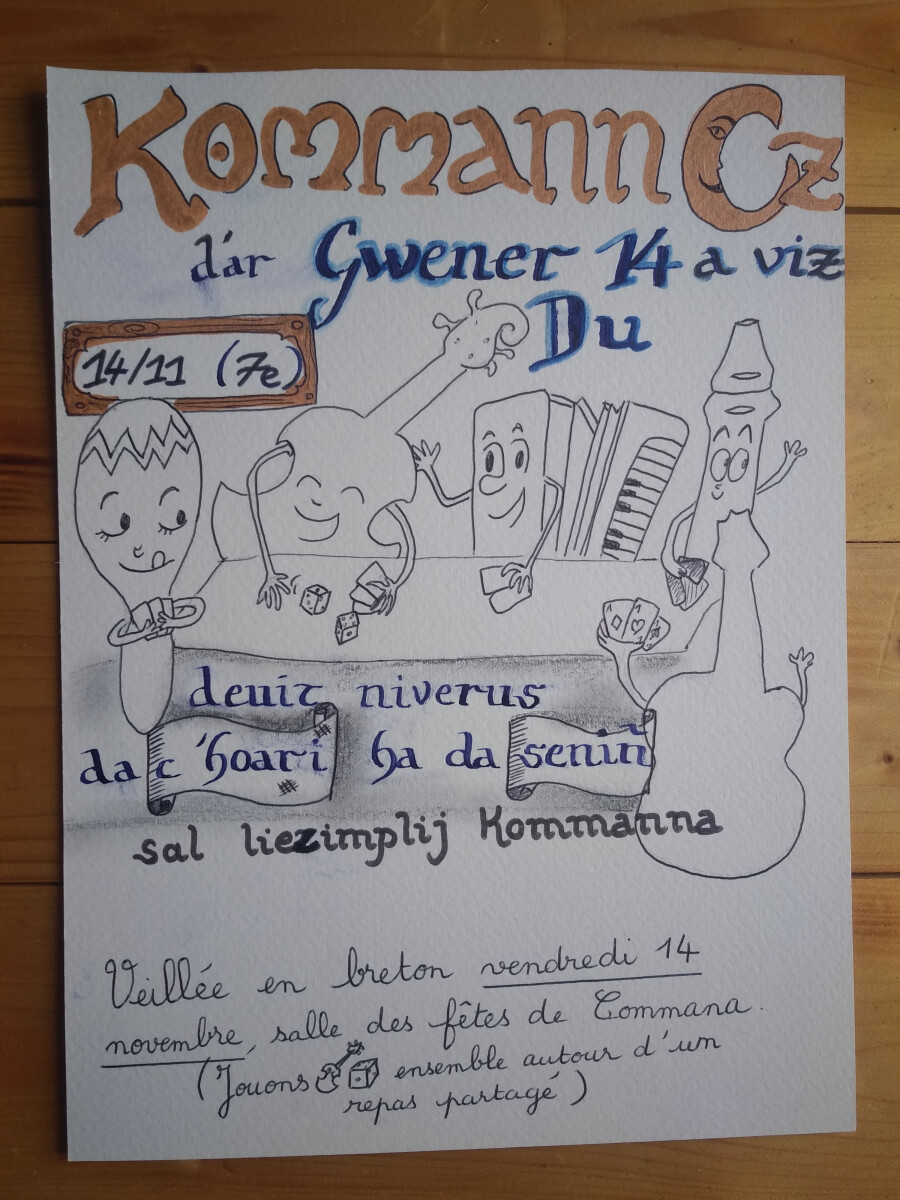 KommannOz
d'ar Gwener 14 a viz
Du
14/11 (7e)
deuit niverus
da c'hoari ha da seniñ
sal liezimplij Kommanna
Veillée en breton vendredi 14
novembre, salle des fêtes de Commana.
(Jouons ensemble autour d'un
repas partagé)